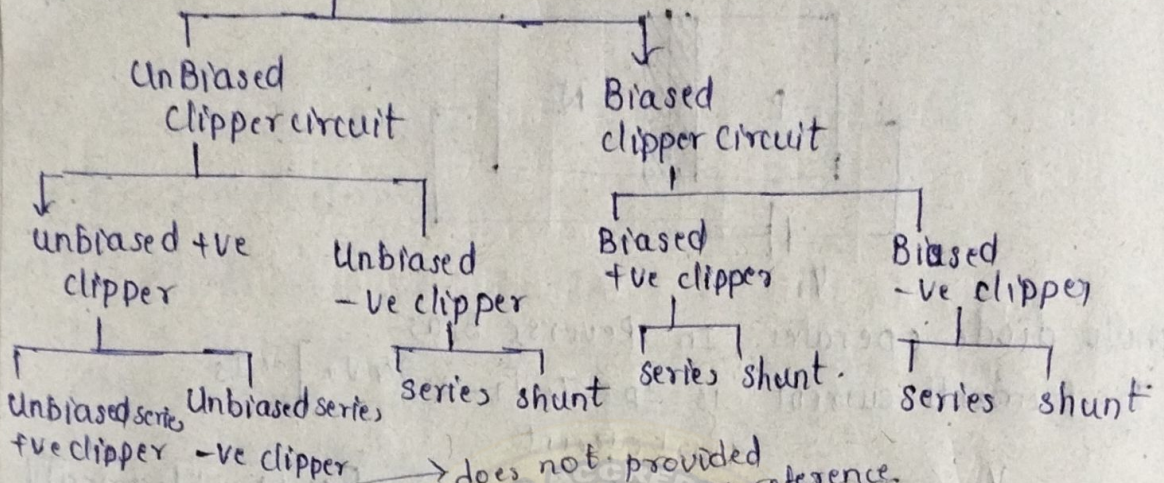 UnBiased
Clipper circuit
Biased
clipper circuit
unbiased +ve
clipper
Unbiased
-ve clipper
Biased
+ve clipper
Biased
-ve clipper
Unbiased serie,
+ve clipper
Unbiased series
-ve clipper
series shunt
series shunt.
series shunt
→ does not provided